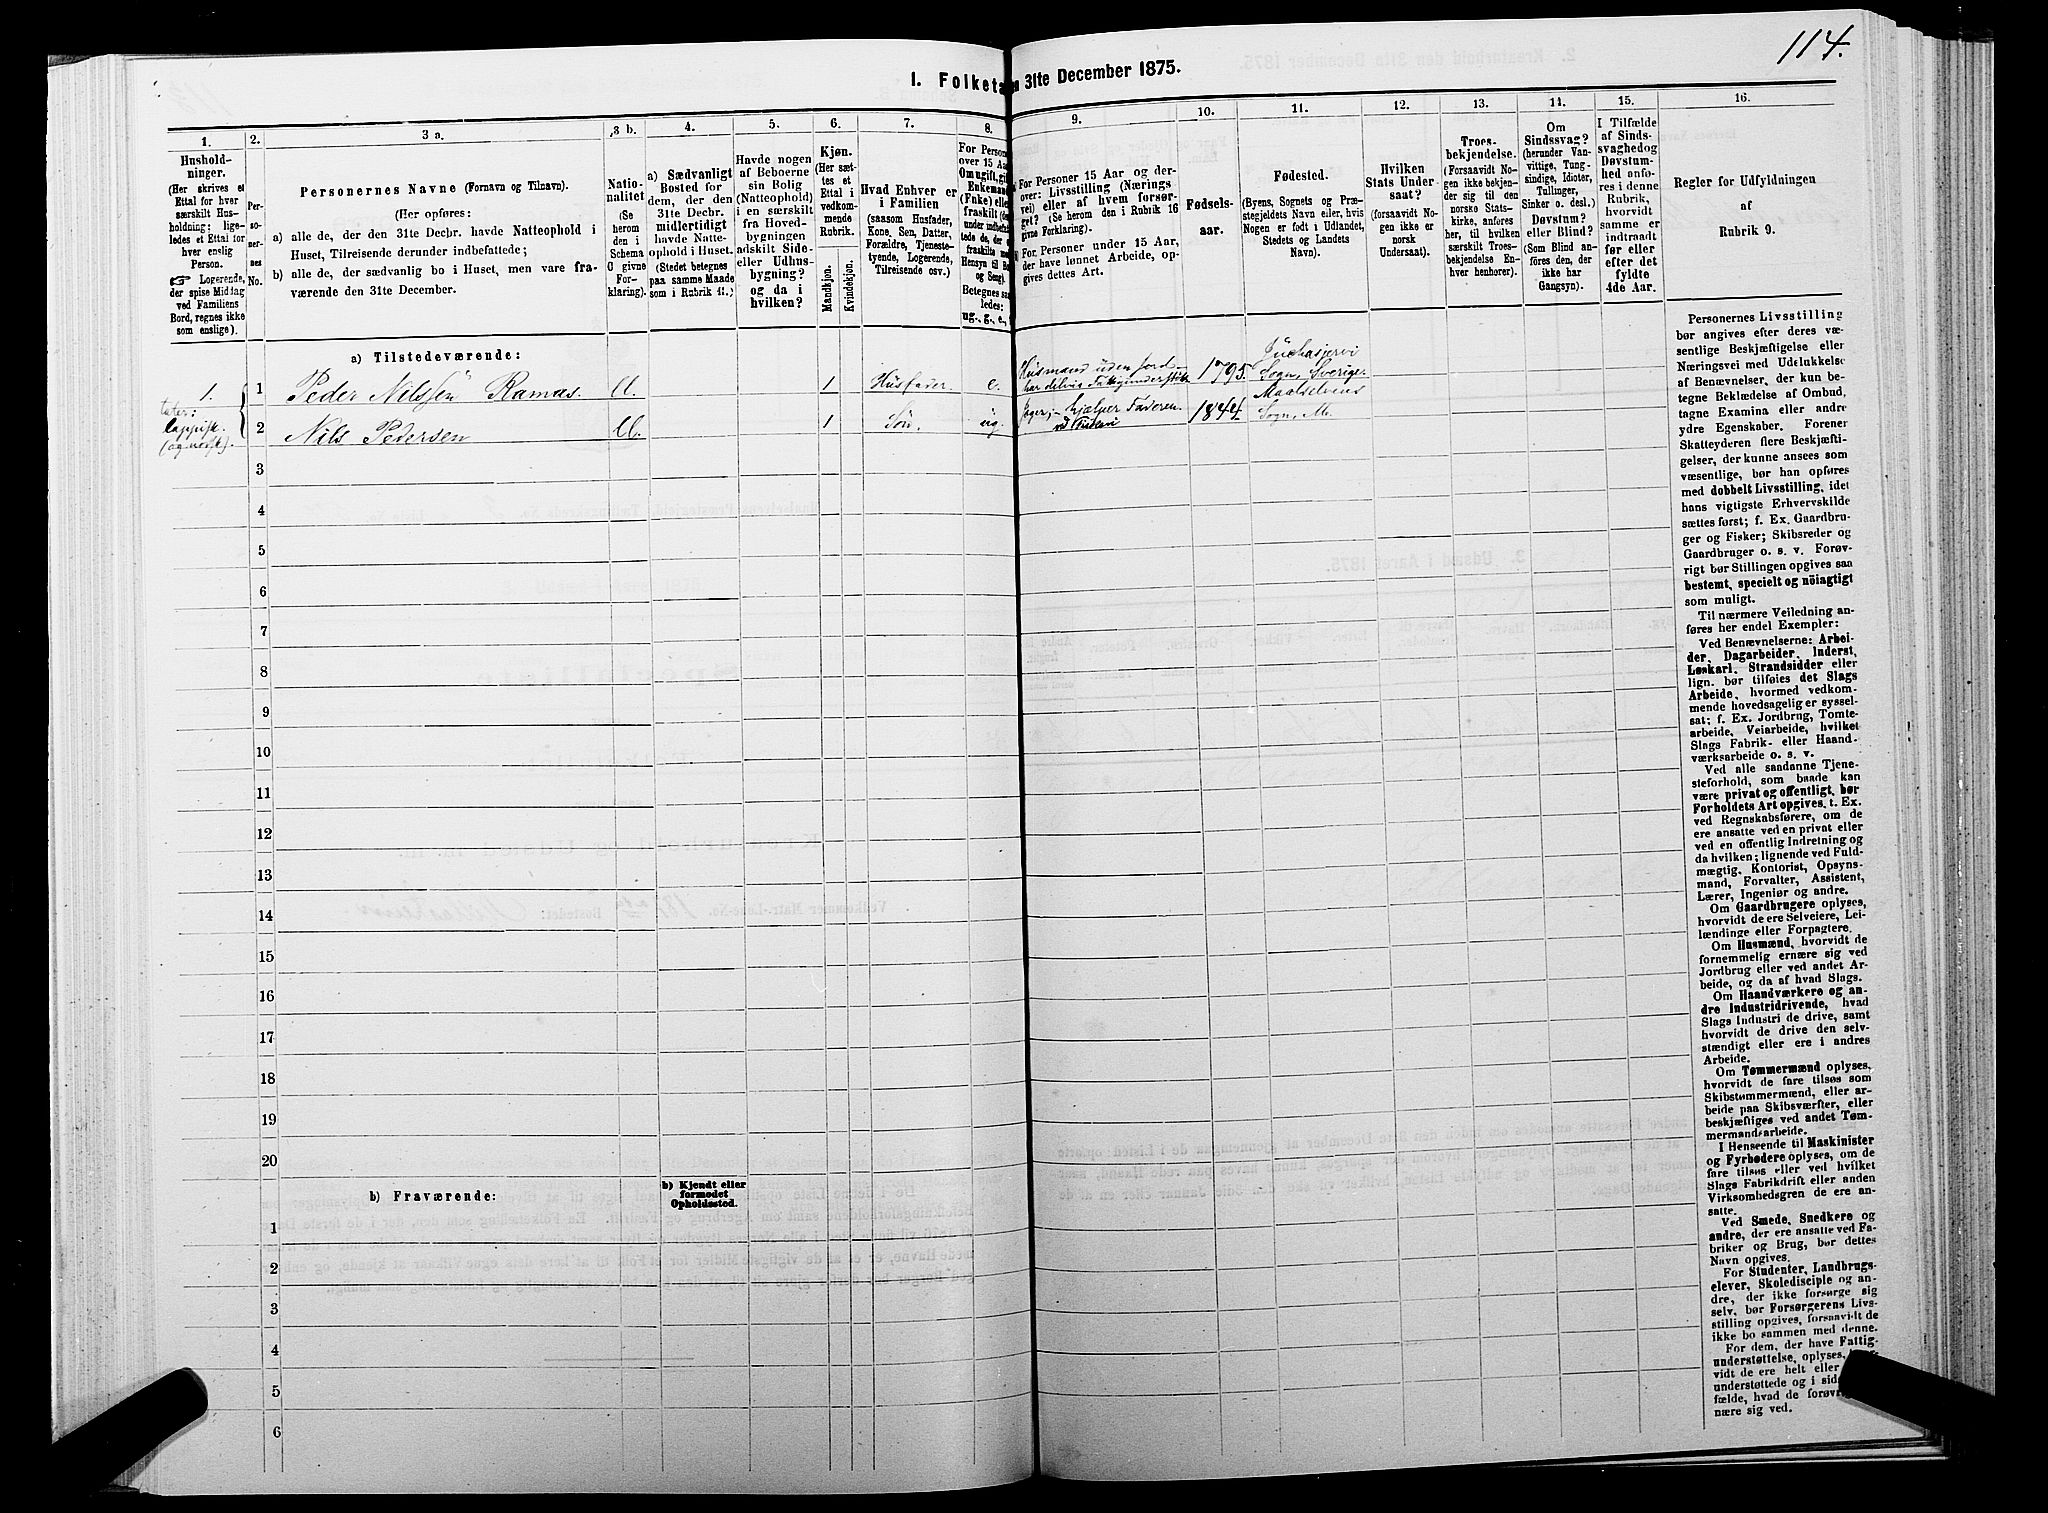 114.
I. Folketa
en 31te December 1875.
1.
Hushold-
ninger.
(Her skrives et
Ettal for hver
særskilt Hus-
holdning; lige-
ledes et Ettal for
hver enslig
Person.
☞ Logerende,
der spise Middag
ved Familiens
Bord, regnes ikke
som enslige).
2.
Per-
so-
ner-
nes
No.
3 a.
Personernes Navne (Fornavn og Tilnavn).
(Her opføres:
a) alle de, der den 31te Decbr. havde Natteophold i
Huset, Tilreisende derunder indbefattede;
b) alle de, der sædvanlig bo i Huset, men vare fra-
værende den 31te December.
3 b.
Natio-
nalitet
(Se
herom
den i
Schema
O givne
For-
klaring).
4.
a) Sædvanligt
Bosted for
dem, der den
31te Decbr.
midlertidigt
havde Natte-
ophold i Huset.
(Stedet betegnes
paa samme Maade
som i Rubrik 11.)
5.
Havde nogen
af Beboerne
sin Bolig
(Natteophold)
i en særskilt
fra Hoved-
bygningen
adskilt Side-
eller Udhus-
bygning?
og da i
hvilken?
6.
Kjøn.
(Her sæt-
tes et
Ettal i
vedkom-
mende
Rubrik.
Mandkjøn.
Kvindekjøn.
7.
Hvad Enhver er
i Familien
(saasom Husfader,
Kone, Søn, Datter,
Forældre, Tjeneste-
tyende, Logerende,
Tilreisende osv.)
8.
For Person
over 15 Aar
Om ugift, gif
Enkemand
(Enke) elle
fraskilt (de
under indbefat
tede de, der er
fraskilte med
Hensyn til Bo
og Seng).
Betegnes saa
ledes:
ug., g., e.,
9.
For Personer 15 Aar og der-
over: Livsstilling (Nærings
vei) eller af hvem forsør-
get? (Se herom den i Rubrik 16
givne Forklaring).
For. Personer under 15 Aar,
der have lønnet Arbeide, op-
gives dettes Art.
10.
Fødsels-
aar.
11.
Fødested.
(Byens, Sognets og Præ-
stegjeldets Navn eller, hvis
Nogen er født i Udlandet,
Stedets og Landets
Navn).
12.
Hvilken
Stats Under-
saat?
(forsaavidt No-
gen ikke er
norsk
Undersaat).
13.
Troes-
bekjendelse.
(Forsaavidt No-
gen ikke bekjen-
der sig til den
norske Stats-
kirke, anføres
her, til hvilken
særskilt Troes-
bekjendelse En-
hver henhører).
14.
Om
Sindssvag?
(herunder Van-
vittige, Tung-
sindige, Idioter,
Tullinger,
Sinker o. desl.)
Døvstum?
eller Blind?
(Som Blind an-
føres den, der
ikke har
Gangsyn).
15.
I Tilfælde
af Sinds-
svaghed og
Døvstum-
hed anfø-
res i denne
Rubrik,
hvorvidt
samme er
indtraadt
før eller
efter det
fyldte
4de Aar.
16.
Regler for Udfyldningen
af
Rubrik 9.
a) Tilstedeværende:
1.
1
Peder Nilssen Ramas.
1
Husfader.
e.
Husmand uden Jord
1795.
Juckasjervi
Sogn, Sverige.
taler:
lappisk
(og norsk).
2
Nils Pedersen
1
Søn.
ug.
hjælper Faderen
1844.
Maalselvens
Sogn,
3
4
5
6
7
8
9
10
11
12
13
14
15
16
17
18
19
20
b) Fraværende:
b) Kjendt eller
formodet
Opholdssted.
1
2
3
4
5
6
Personernes Livsstilling
bør angives efter deres væ-
sentlige Beskjæftigelse eller
Næringsvei med Udelukkelse
af Benævnelser, der kun be-
tegne Beklædelse af Ombud,
tagne Examina eller andre
ydre Egenskaber. Forener
Skatteyderen flere Beskjæfti-
gelser, der kunne ansees som
væsentlige, bør han opføres
med dobbelt Livsstilling, idet
hans vigtigste Erhvervskilde
sættes først; f. Ex. Gaardbru-
ger og Fisker; Skibsreder og
Gaardbruger o. s. v. Forøv-
rigt bør Stillingen opgives saa
bestemt, specielt og nöiagtigt
som muligt.
Til nærmere Veiledning an-
føres her endel Exempler:
Ved Benævnelserne: Arbei-
der, Dagarbeider, Inderst,
Løskarl, Strandsidder eller
lign. bør tilføies det Slags
Arbeide, hvormed vedkom-
mende hovedsagelig er syssel-
sat; f. Ex. Jordbrug, Tomte-
arbeide, Veiarbeide, hvilket
Slags Fabrik- eller Haand-
værksarbeide o. s. v.
Ved alle saadanne Tjene-
steforhold, som baade kan
være privat og offentligt, bør
Forholdets Art opgives. t. Ex.
ved Regnskabsførere, om de
ere ansatte ved en privat eller
ved en offentlig Indretning og
da hvilken; lignende ved Fuld-
mægtig, Kontorist, Opsyns-
mand, Forvalter, Assistent,
Lærer, Ingeniør og andre.
Om Gaardbrugere oplyses,
hvorvidt de ere Selveiere, Lei-
lændinge eller Forpagtere.
Om Husmænd, hvorvidt de
fornemmelig ernære sig ved
Jordbrug eller ved andet Ar-
beide, og da af hvad Slags.
Om Haandværkere og an-
dre Industridrivende, hvad
Slags Industri de drive, samt
hvorvidt de drive den selv-
stændigt eller ere i andres
Arbeide.
Om Tømmermænd oplyses,
hvorvidt de fare tilsøs som
Skibstømmermænd, eller ar-
beide paa Skibsværfter, eller
beskjæftiges ved andet Tøm-
mermandsarbeide.
I Henseende til Maskinister
og Fyrbødere oplyses, om de
fare tilsøs eller ved hvilket
Slags Fabrikdrift eller anden
Virksomhedsgren de ere an-
satte.
Ved Smede, Snedkere og
andre, der ere ansatte ved Fa-
briker og Brug, bør dettes
Navn opgives.
For Studenter, Landbrugs-
elever, Skoledisciple og an-
dre, der ikke forsørge sig
selv, bør Forsørgerens Livs-
stilling opgives, forsaavidt de
ikke bo sammen med denne.
For dem, der have Fattig-
understøttelse, oplyses,
vidt de ere helt eller
understøttede og i sid
fælde, hvad de forøvr
nære sig ved.